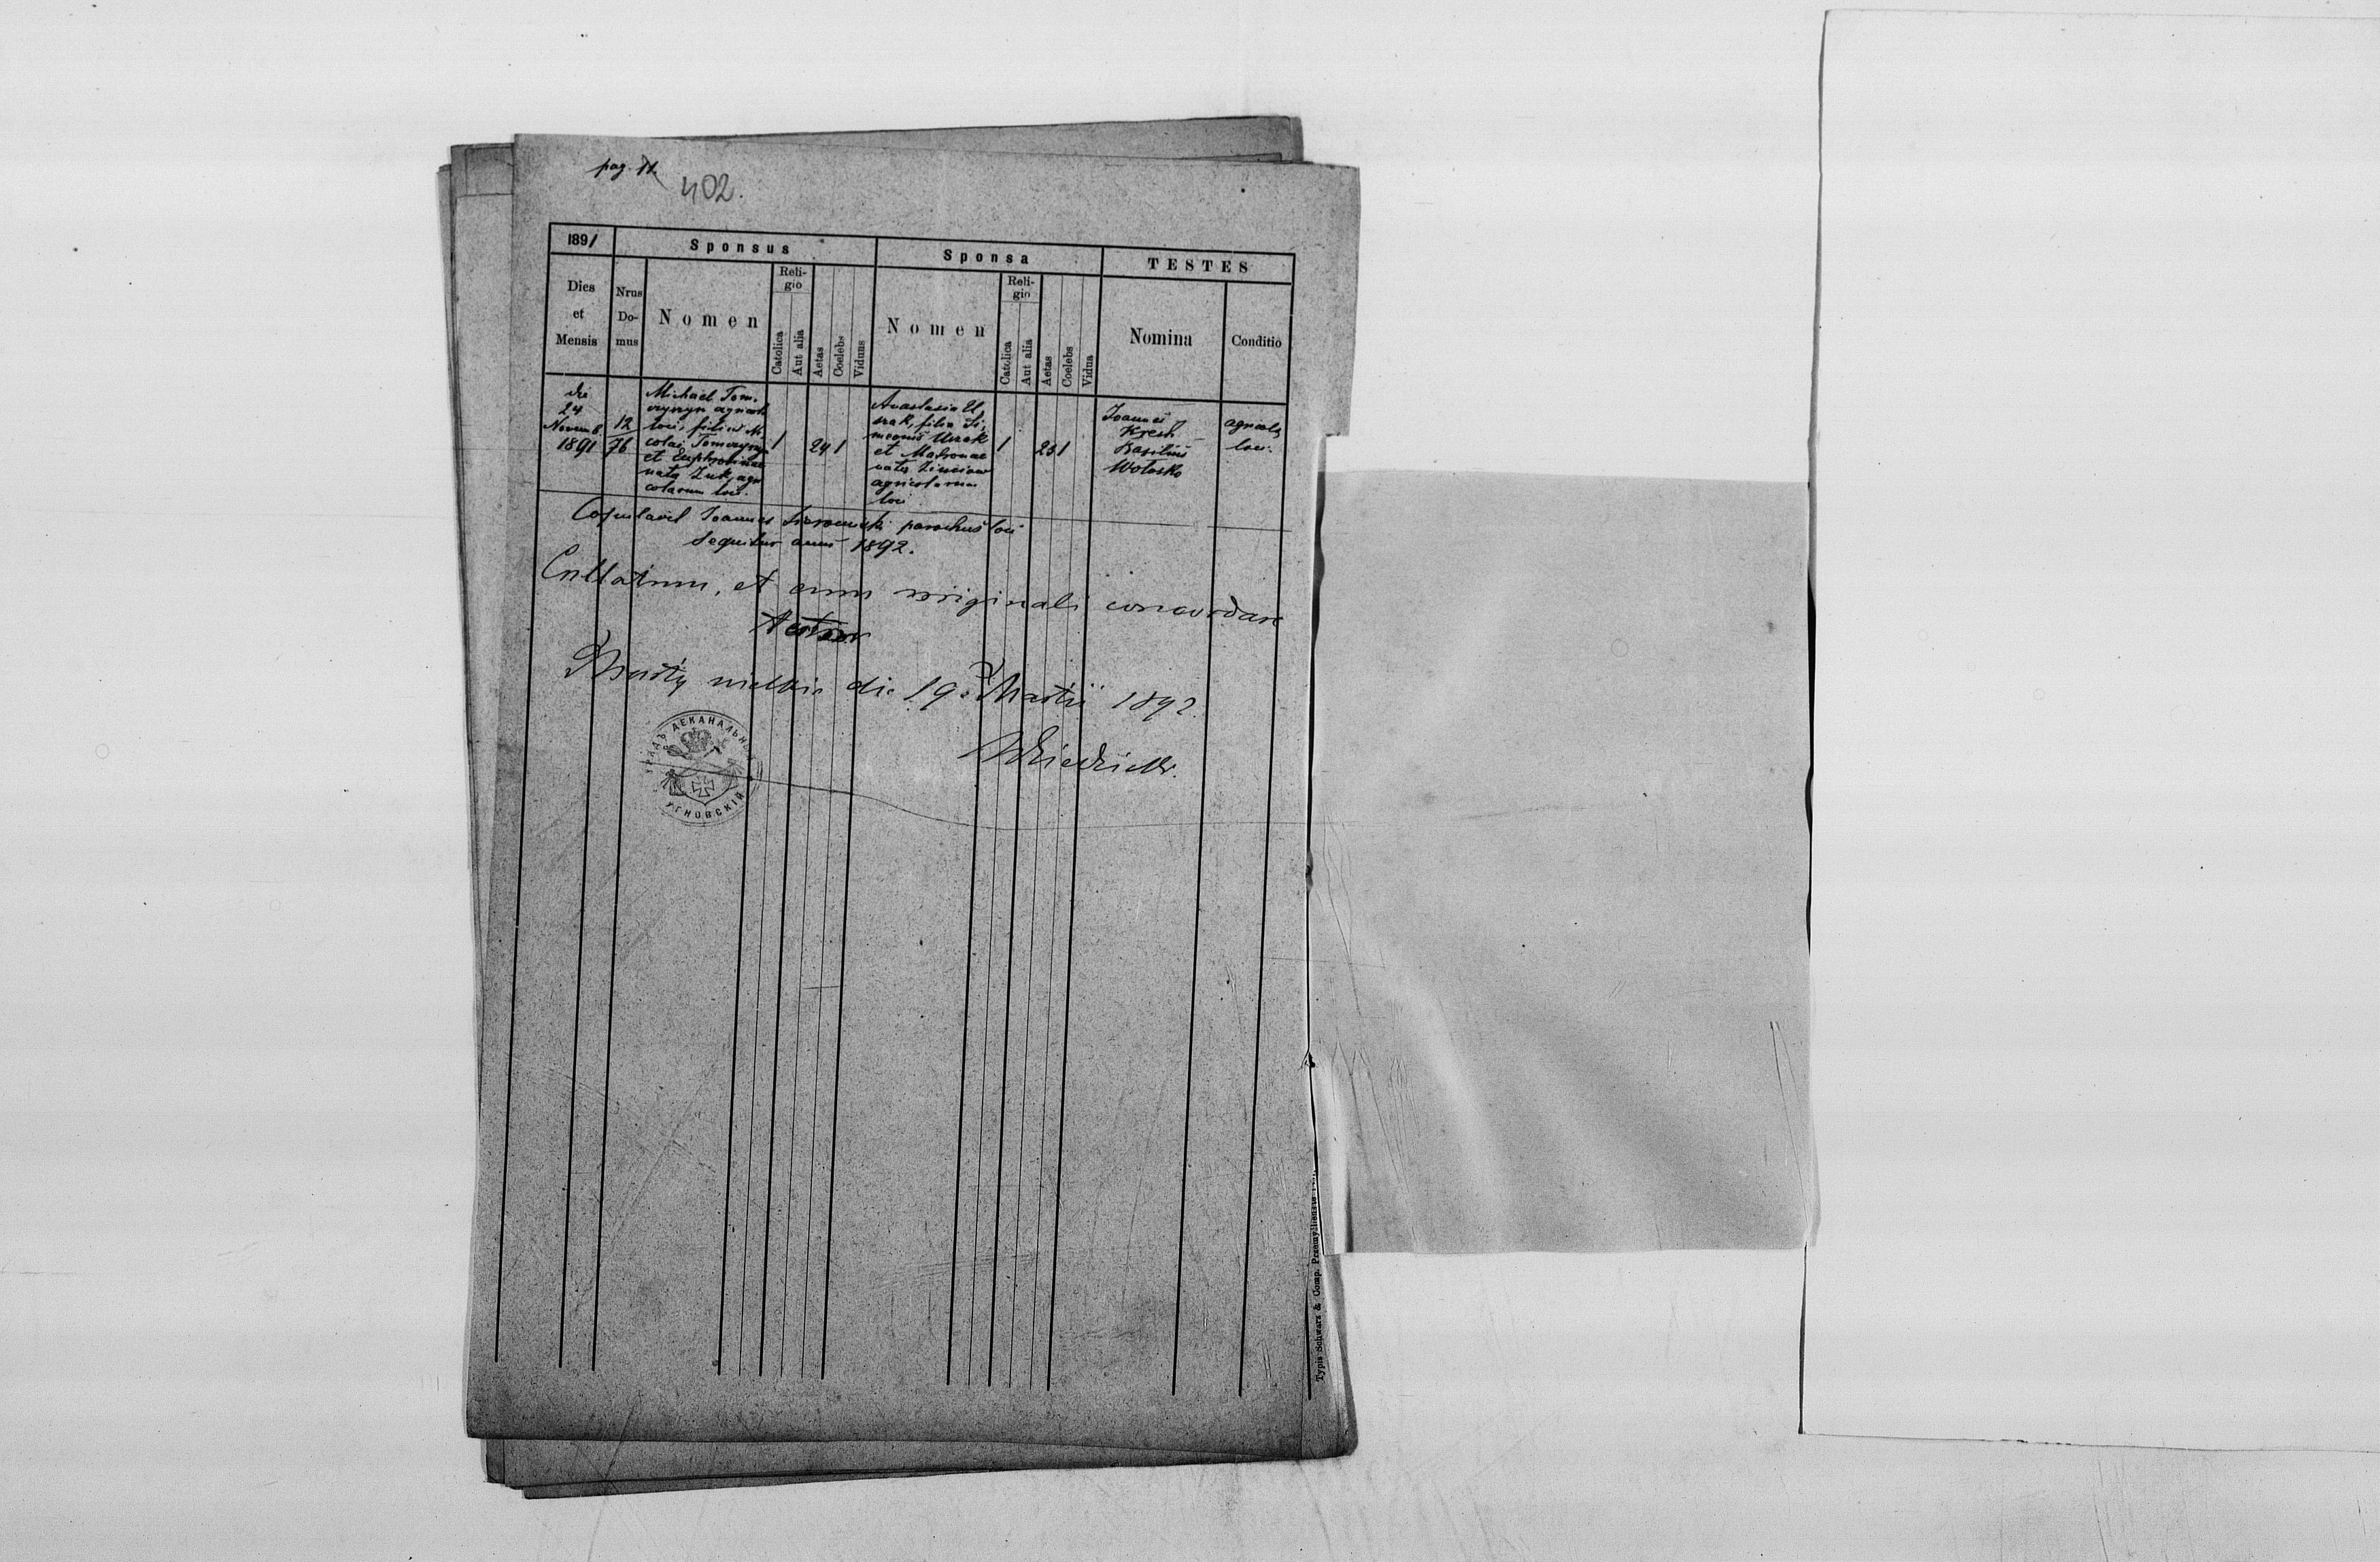 pag. 11.
402.
1891
Sponsus
Sponsa
TESTES
Dies et Mensis
Nrus Domus
Nomen
Religio
Catolica
Aut alia
Aetas
Coelebs
Viduus
Nomen
Religio
Catolica
Aut alia
Aetas
Coelebs
Vidua
Nomina
Conditio
die
24
Novemb.
1891
12
76
Michael Tom-
agricola
loci, filius Ni-
colai
et Euphrosinae
nata Zuk, agri
colarum loci.
1
24
1
Anastasia
filia Si-
meonis
et Matronae
nata
agricolarum
loci
1
23
1
Joannes
Kresh
Basilius
Wołosko
agricola
loci.
Copulavit Joannes parochus loci
sequitur annus 1892.
Collatum, et cum originali concordare
testor
die 19. Martii 1892.
ДЕКАНАЛЬНЫЙ
УГНОВСКІЙ
Typis Schwarz & Comp. Przemysliensis